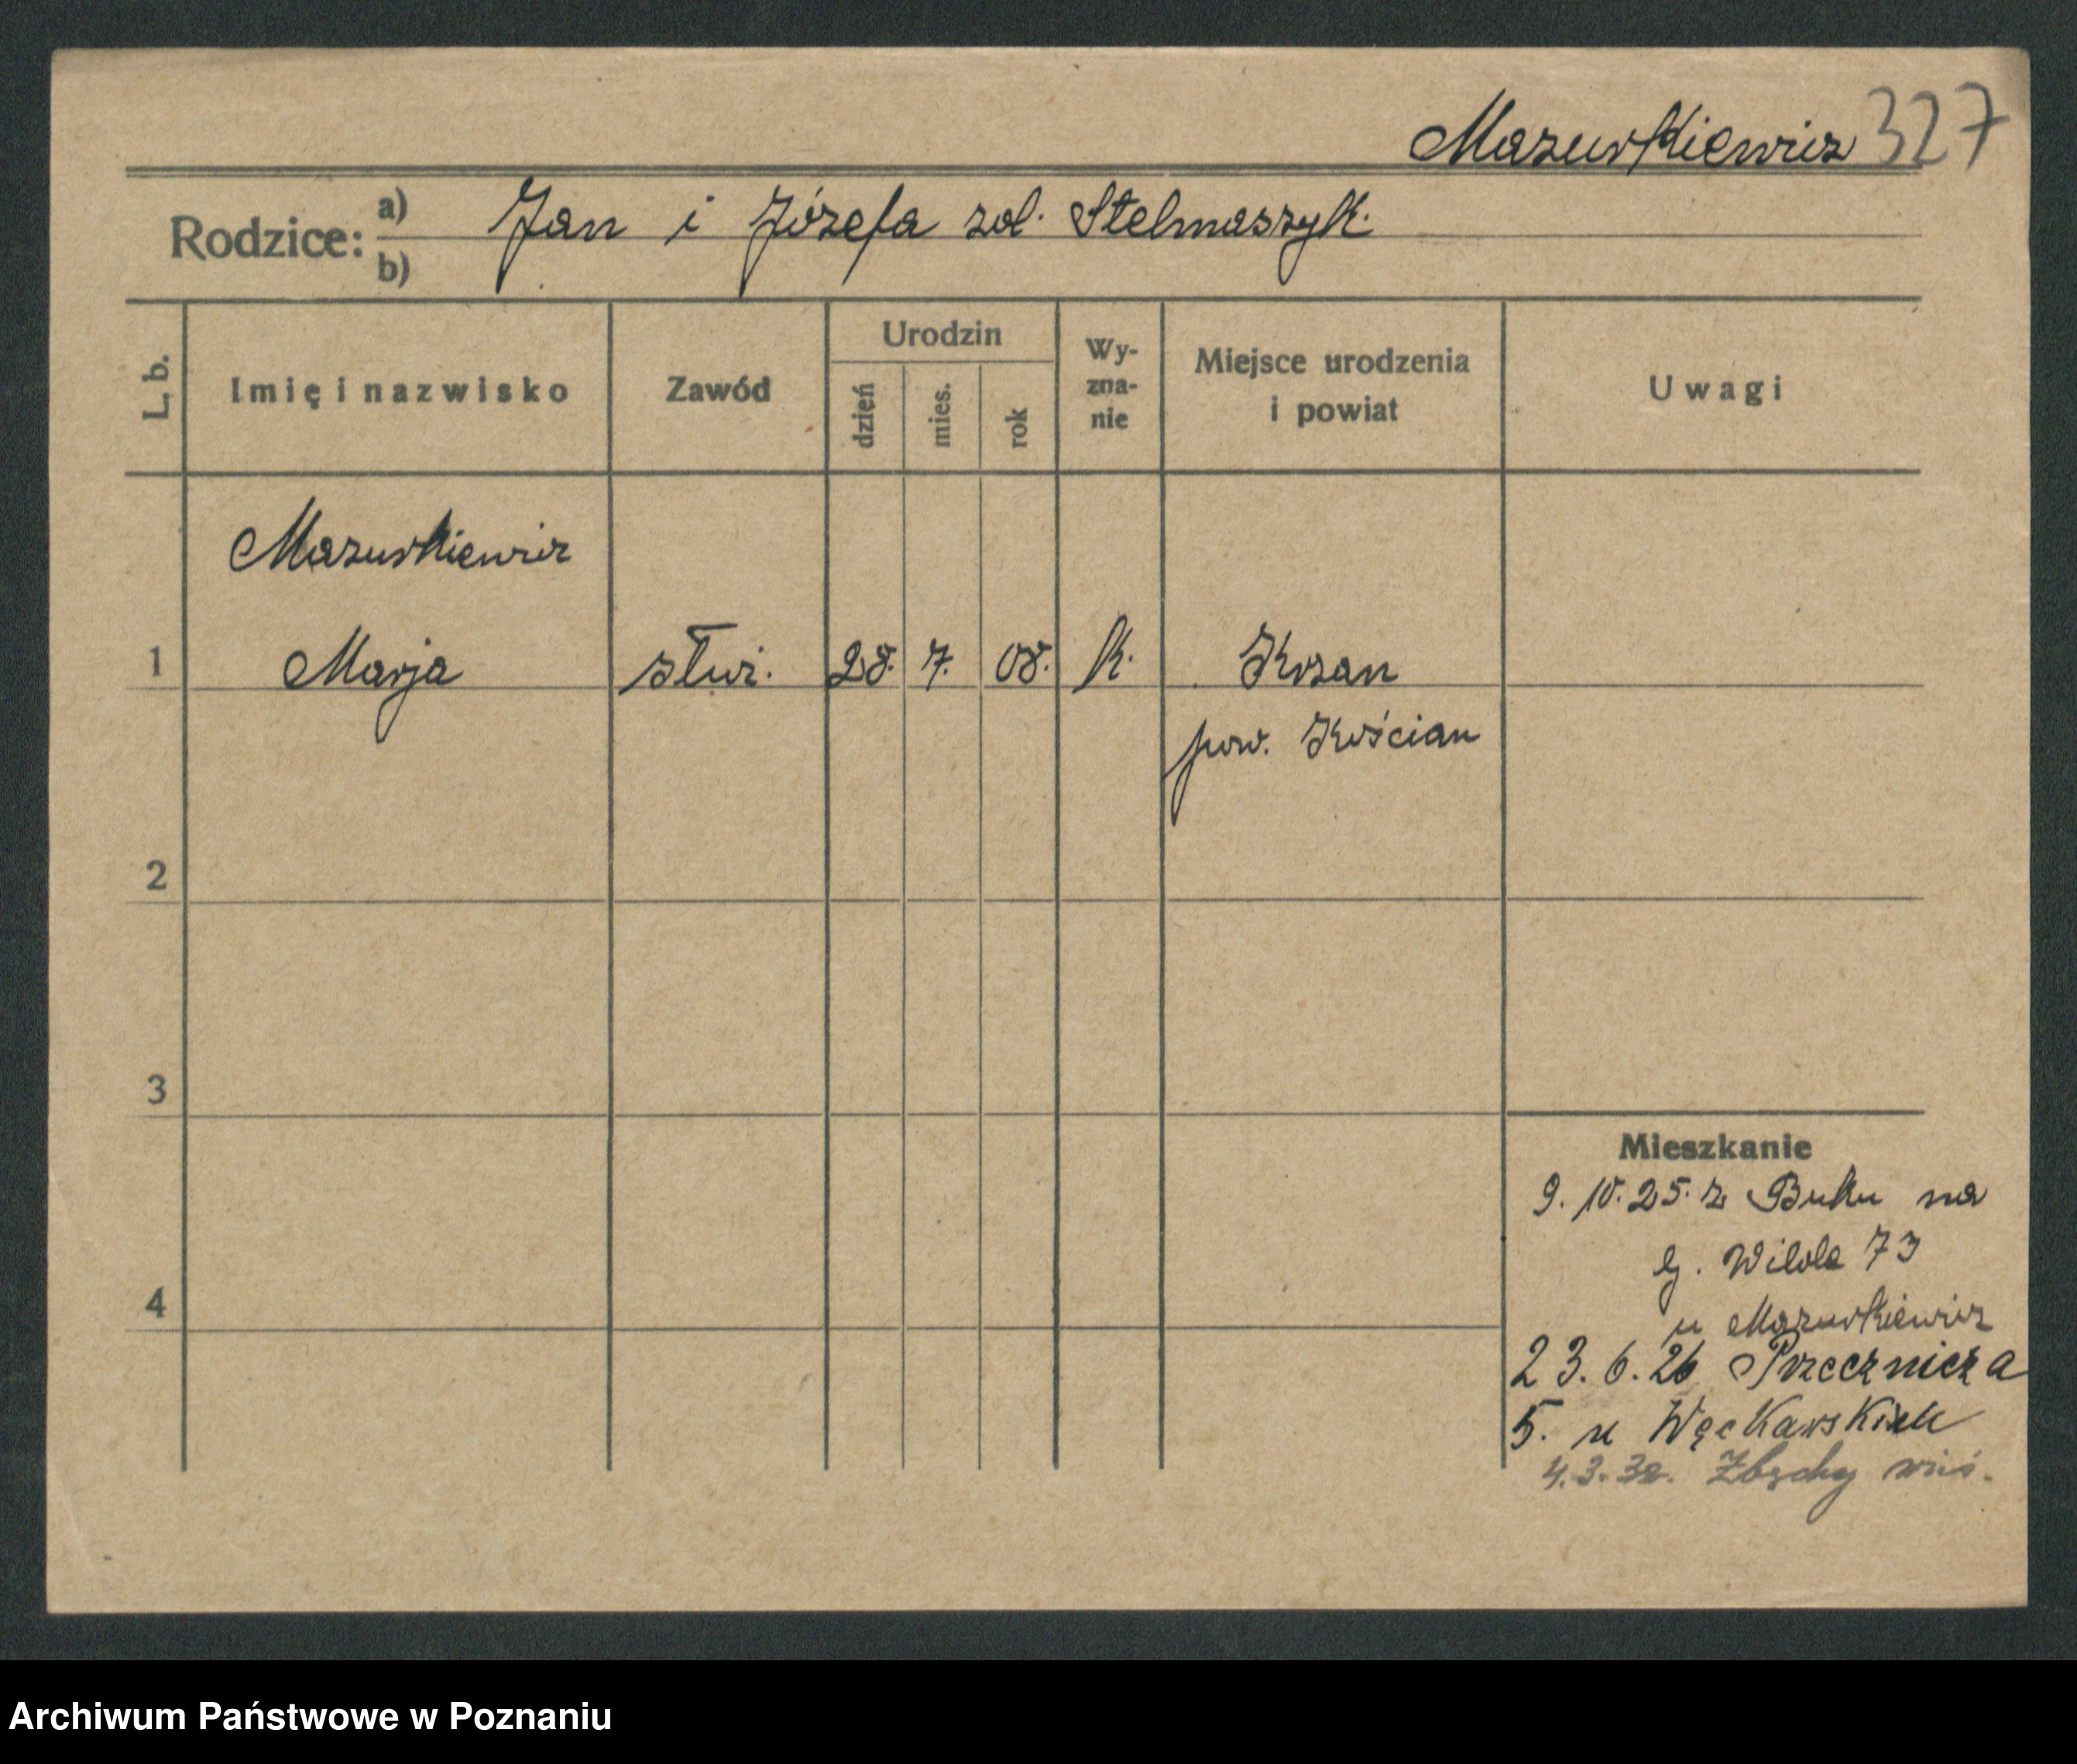 Mazurkiewicz 327
Rodzice: a) b) Jan i Józefa zol. Stelmaszyk.
L. b.
Imię i nazwisko
Zawód
Urodzin
dzień
mies.
rok
Wy-
zna-
nie
Miejsce urodzenia
i powiat
Uwagi
Mazurkiewicz
1 Marja słuz. 28. 7. 08. k. Krzan
pow. Kościan
2
3
4
Mieszkanie
9. 10. 25. z Buku na
g. Wilda 73
u Mazurkiewicz
23. 6. 26 Przecznicza
5. u
4.3.32. Zbęchy
Archiwum Państwowe w Poznaniu